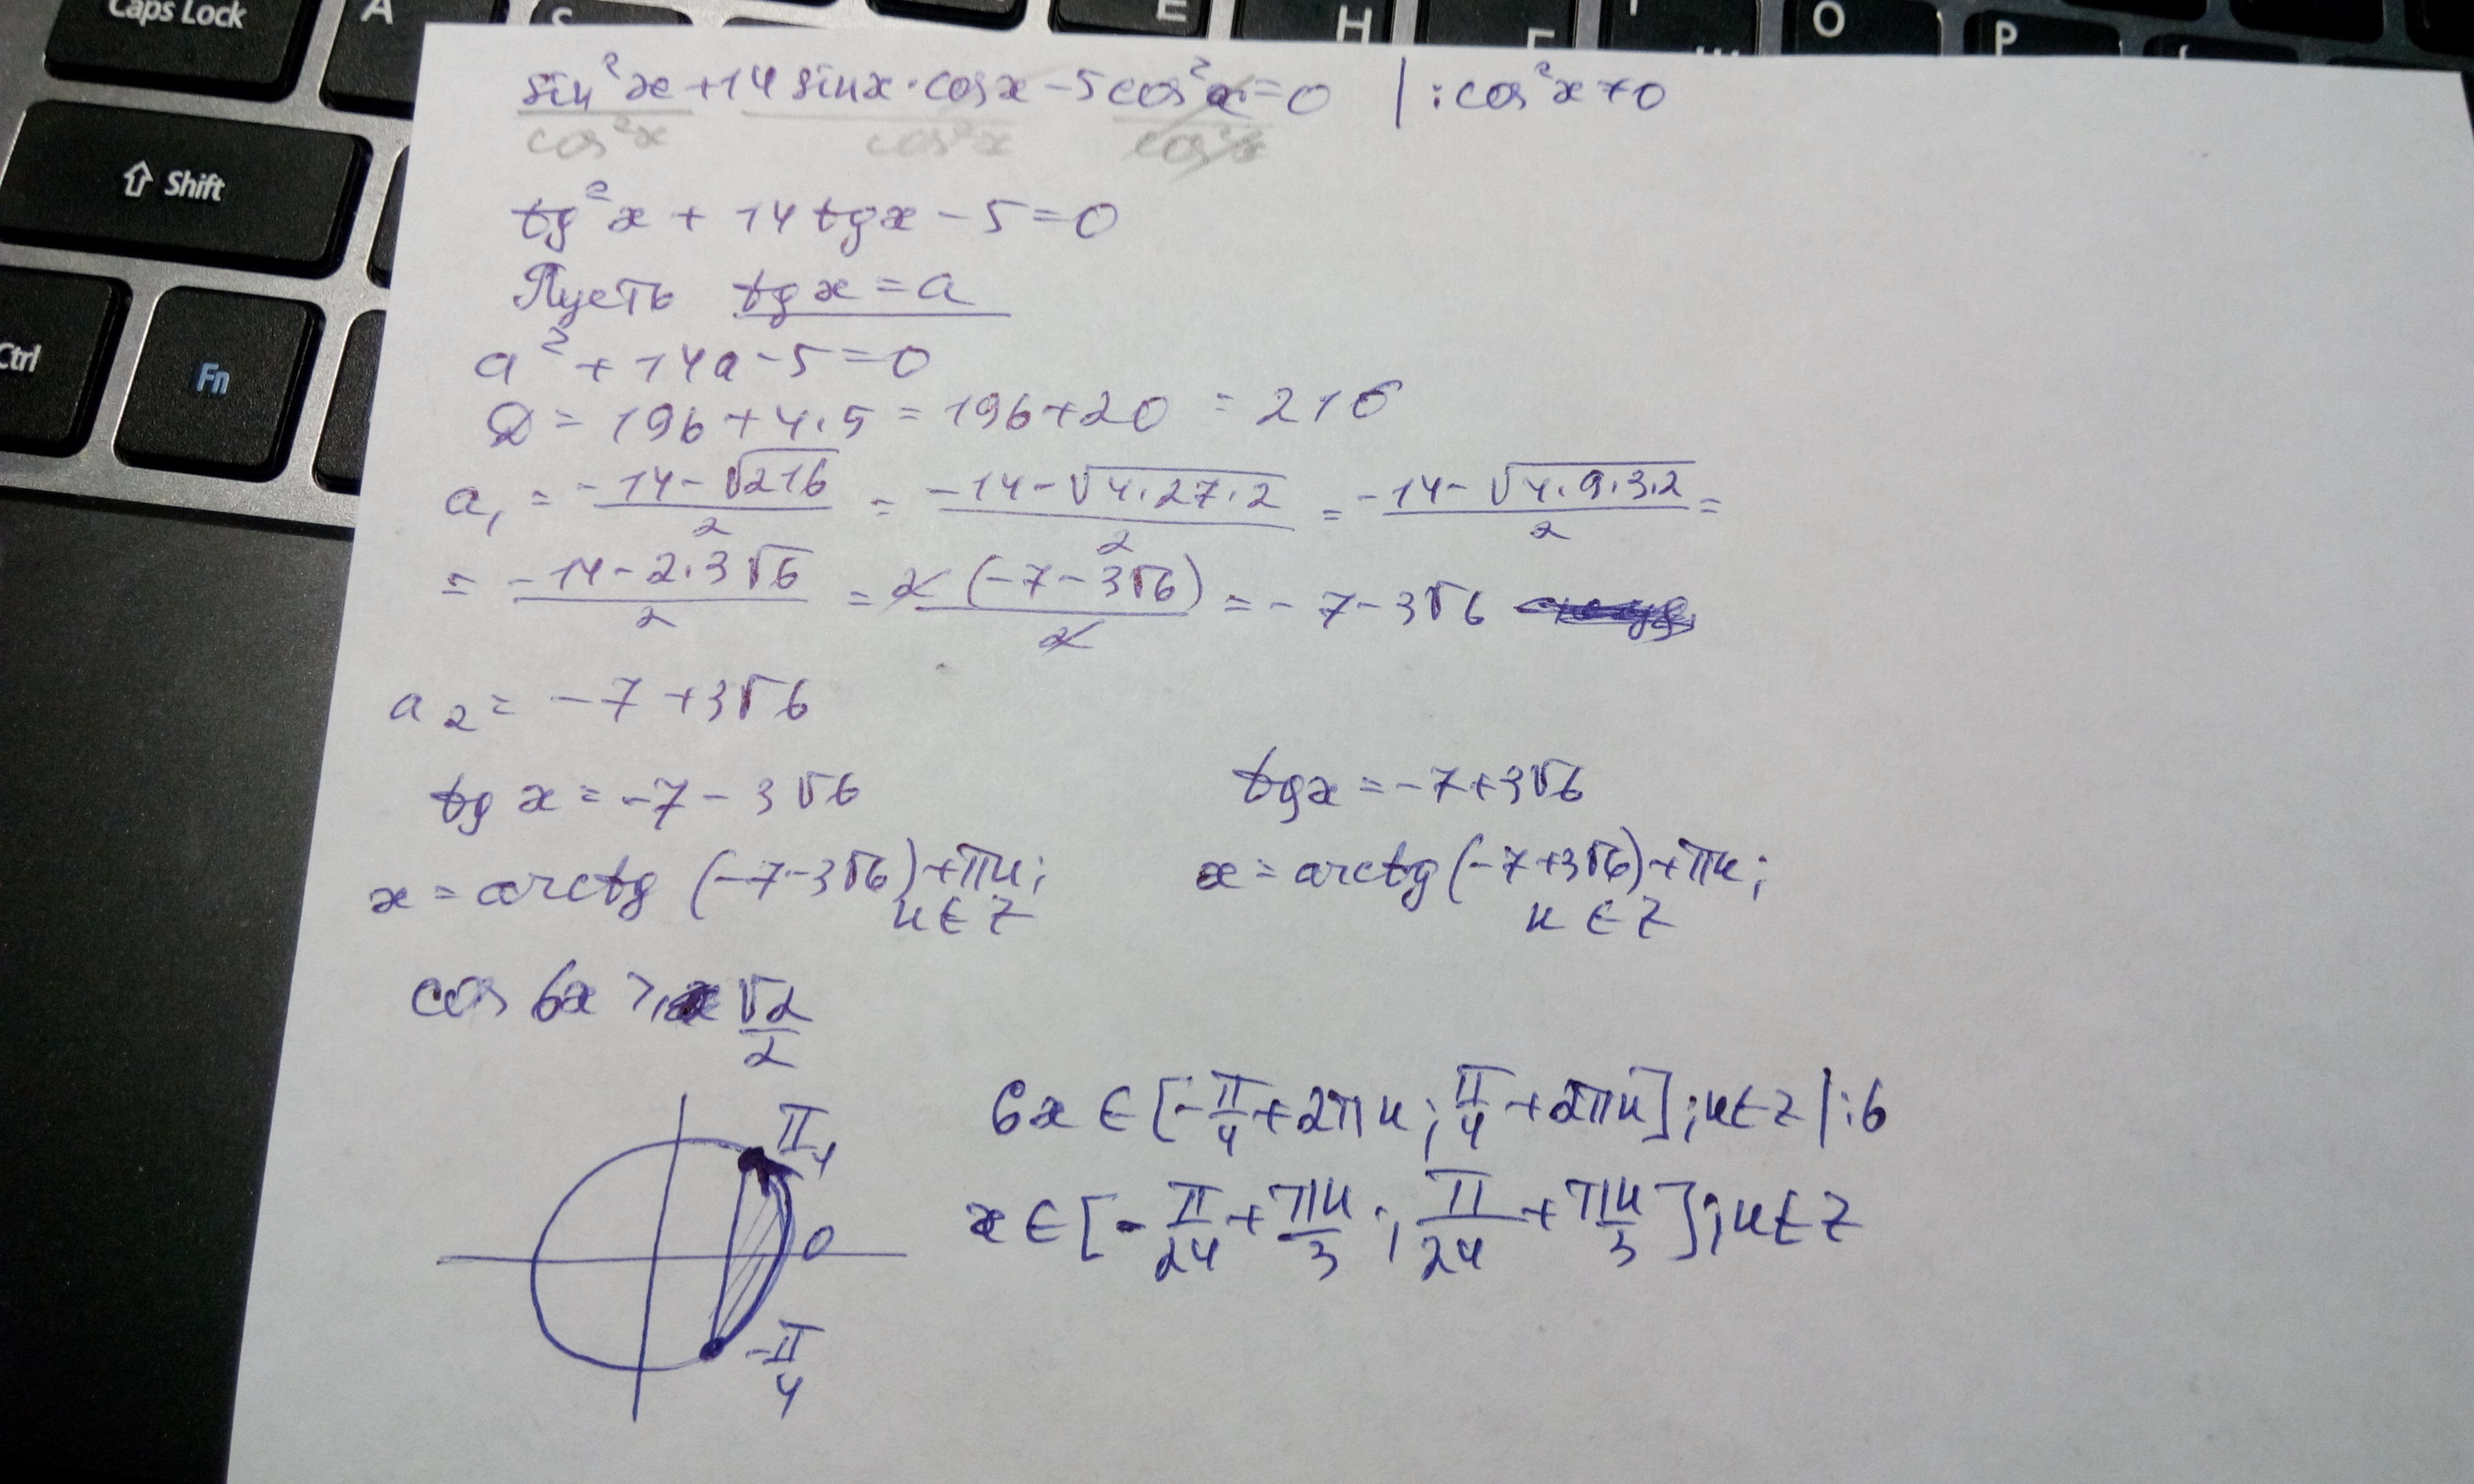 Caps Lock A S E H F O P
⇧ Shift
Ctrl Fn
sin²x + 14 sinx · cosx - 5 cos²x = 0 | : cos²x ≠ 0
cos²x cos²x cos²x
tg²x + 14 tgx - 5 = 0
Пусть tgx = a
a² + 14a - 5 = 0
D = 196 + 4·5 = 196 + 20 = 216
a₁ = (-14 - √216)/2 = (-14 - √(4·27·2))/2 = (-14 - √(4·9·3·2))/2 =
= (-14 - 2·3√6)/2 = 2(-7 - 3√6)/2 = -7 - 3√6
a₂ = -7 + 3√6
tg x = -7 - 3√6 tgx = -7 + 3√6
x = arctg (-7 - 3√6) + πn; x = arctg (-7 + 3√6) + πn;
n ∈ Z n ∈ Z
cos 6x ⩾ √2/2
π/4
6x ∈ [-π/4 + 2πn; π/4 + 2πn]; n ∈ Z | :6
x ∈ [-π/24 + πn/3; π/24 + πn/3]; n ∈ Z
0
-π/4